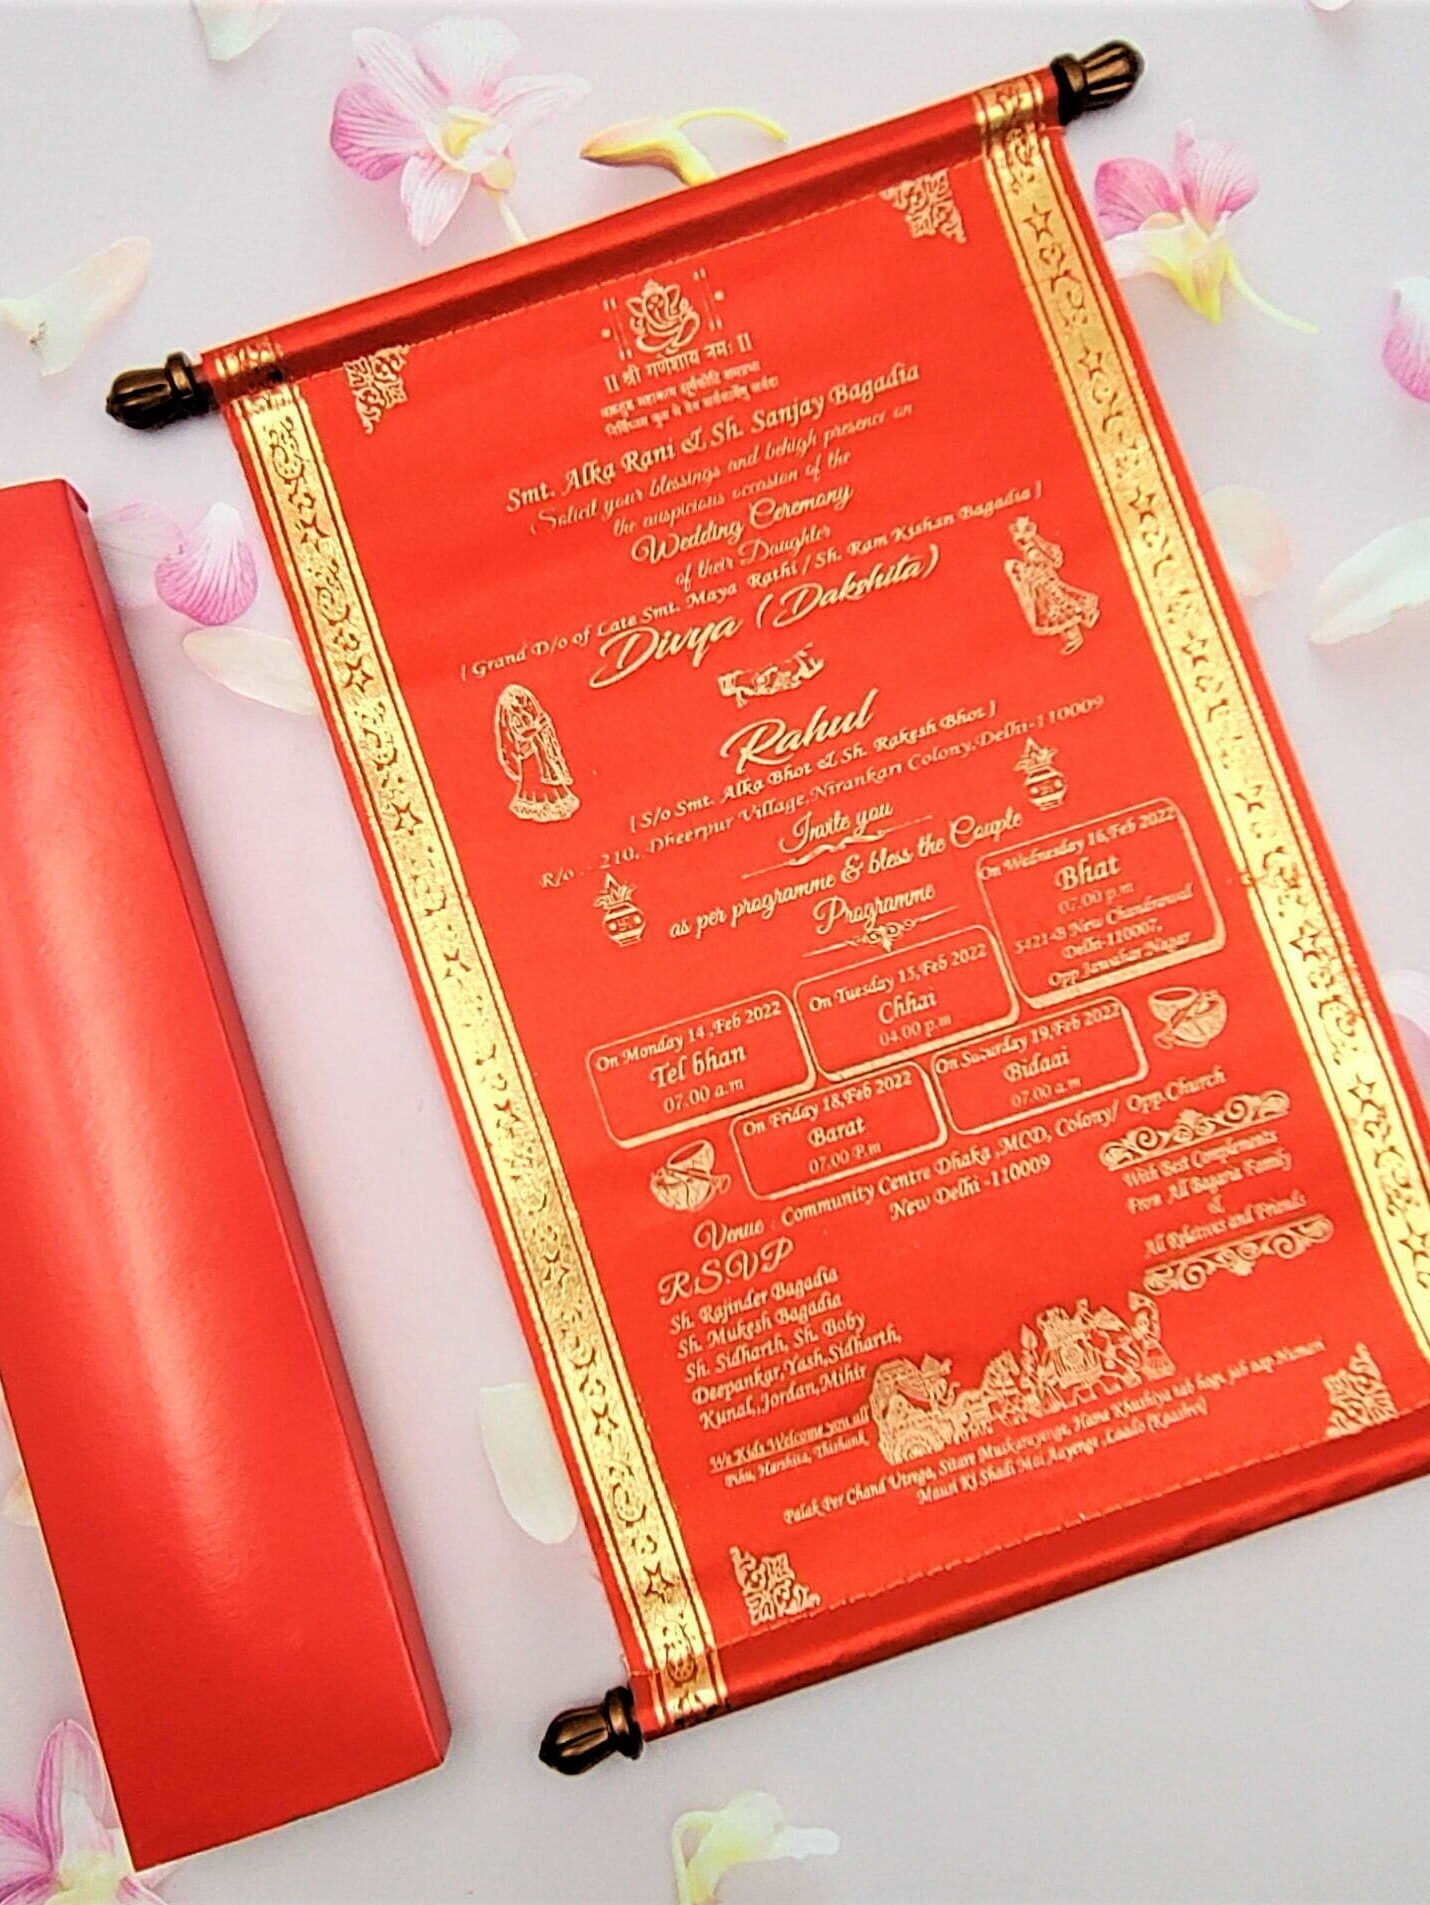 ॥ श्री गणेशाय नमः ॥
वक्रतुण्ड महाकाय सूर्यकोटि समप्रभ
निर्विघ्नम कुरु मे देव सर्वकार्येषु सर्वदा
Smt. Alka Rani & Sh. Sanjay Bagadia
Solicit your blessings and behigh presence on
the auspicious occasion of the
Wedding Ceremony
of their Daughter
[ Grand D/o of Late Smt. Maya Rathi / Sh. Ram Kishan Bagadia ]
Divya (Dakshita)
Rahul
[ S/o Smt. Alka Bhot & Sh. Rakesh Bhot ]
R/o .. 210, Dheerpur Village, Nirankari Colony, Delhi-110009
Invite you
as per programme & bless the Couple
Programme
On Monday 14 ,Feb 2022
Tel bhan
07.00 a.m
On Tuesday 15,Feb 2022
Chhai
04.00 p.m
On Wednesday 16,Feb 2022
Bhat
07.00 p.m
5421-B New Chandrawal
Delhi-110007,
Opp Jawahar Nagar
On Friday 18,Feb 2022
Barat
07.00 P.m
On Saturday 19,Feb 2022
Bidaai
07.00 a.m
Venue : Community Centre Dhaka ,MCD, Colony/ Opp.Church
New Delhi -110009
R.S.V.P
Sh. Rajinder Bagadia
Sh. Mukesh Bagadia
Sh. Sidharth, Sh. Boby
Deepankar,Yash,Sidharth,
Kunal,,Jordan,Mihir
We Kids Welcome you all
Pihu, Harshita, Thishank,
With Best Complements
From All Bagaria Family
of
All Relatives and Friends
Palak Per Chand Utrega, Sitare Muskarayenge, Hame Khushiya tab hogi, jab aap Humari
Mausi Ki Shadi Mai Aayenge ,Laado (Kaashvi)